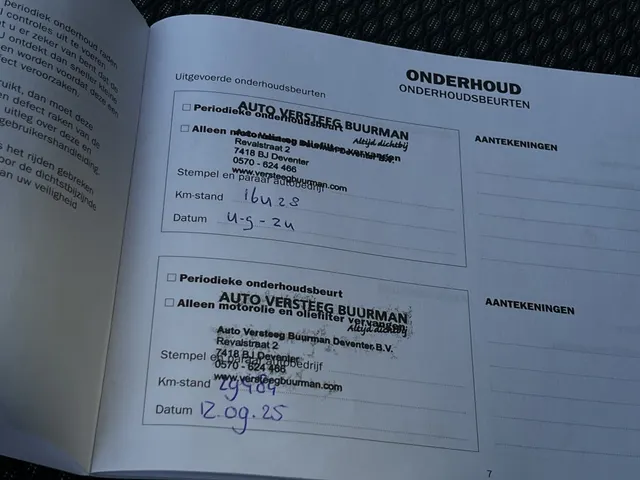 periodiek onderhoud
controles uit te
u er zeker van bent dat de
U ontdekt dan sneller kleine
en worden voordat deze een
fect veroorzaken.
ruikt, dan moet deze
en defect raken van de
uitleg over deze en
gebruikershandleiding.
s het rijden gebreken
oor de dichtstbijzijnde
an uw veiligheid
ONDERHOUD
ONDERHOUDSBEURTEN
Uitgevoerde onderhoudsbeurten
AANTEKENINGEN
Periodieke onderhoudsbeurt
AUTO VERSTEEG BUURMAN
Altijd dichtbij
Alleen motorolie en oliefilter vervangen
Auto Versteeg Buurman Deventer B.V.
Revalstraat 2
7418 BJ Deventer
0570 - 624 466
Stempel en paraaf autobedrijf
www.versteegbuurman.com
Km-stand
Datum
AANTEKENINGEN
Periodieke onderhoudsbeurt
AUTO VERSTEEG BUURMAN
Altijd dichtbij
Alleen motorolie en oliefilter vervangen
Auto Versteeg Buurman Deventer B.V.
Revalstraat 2
7418 BJ Deventer
Stempel en paraaf autobedrijf
0570 - 624 466
www.versteegbuurman.com
Km-stand 29484
Datum 12.09.25
7